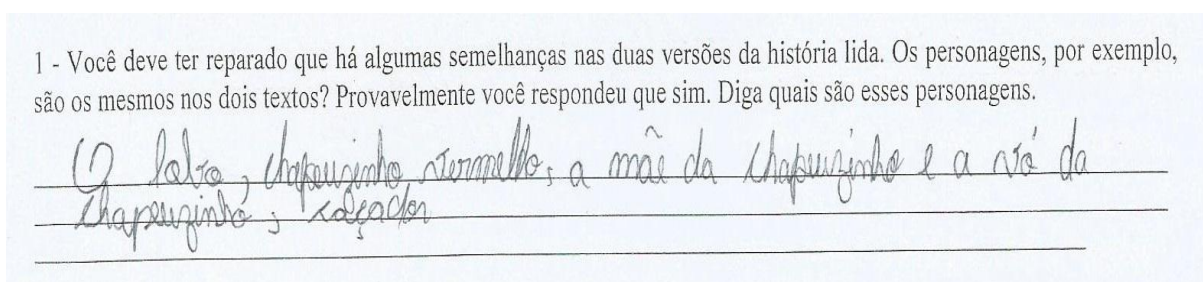 1 - Você deve ter reparado que há algumas semelhanças nas duas versões da história lida. Os personagens, por exemplo,
são os mesmos nos dois textos? Provavelmente você respondeu que sim. Diga quais são esses personagens.
O lobo, chapeuzinho vermelho, a mãe da chapeuzinho e a vó da
chapeuzinho,